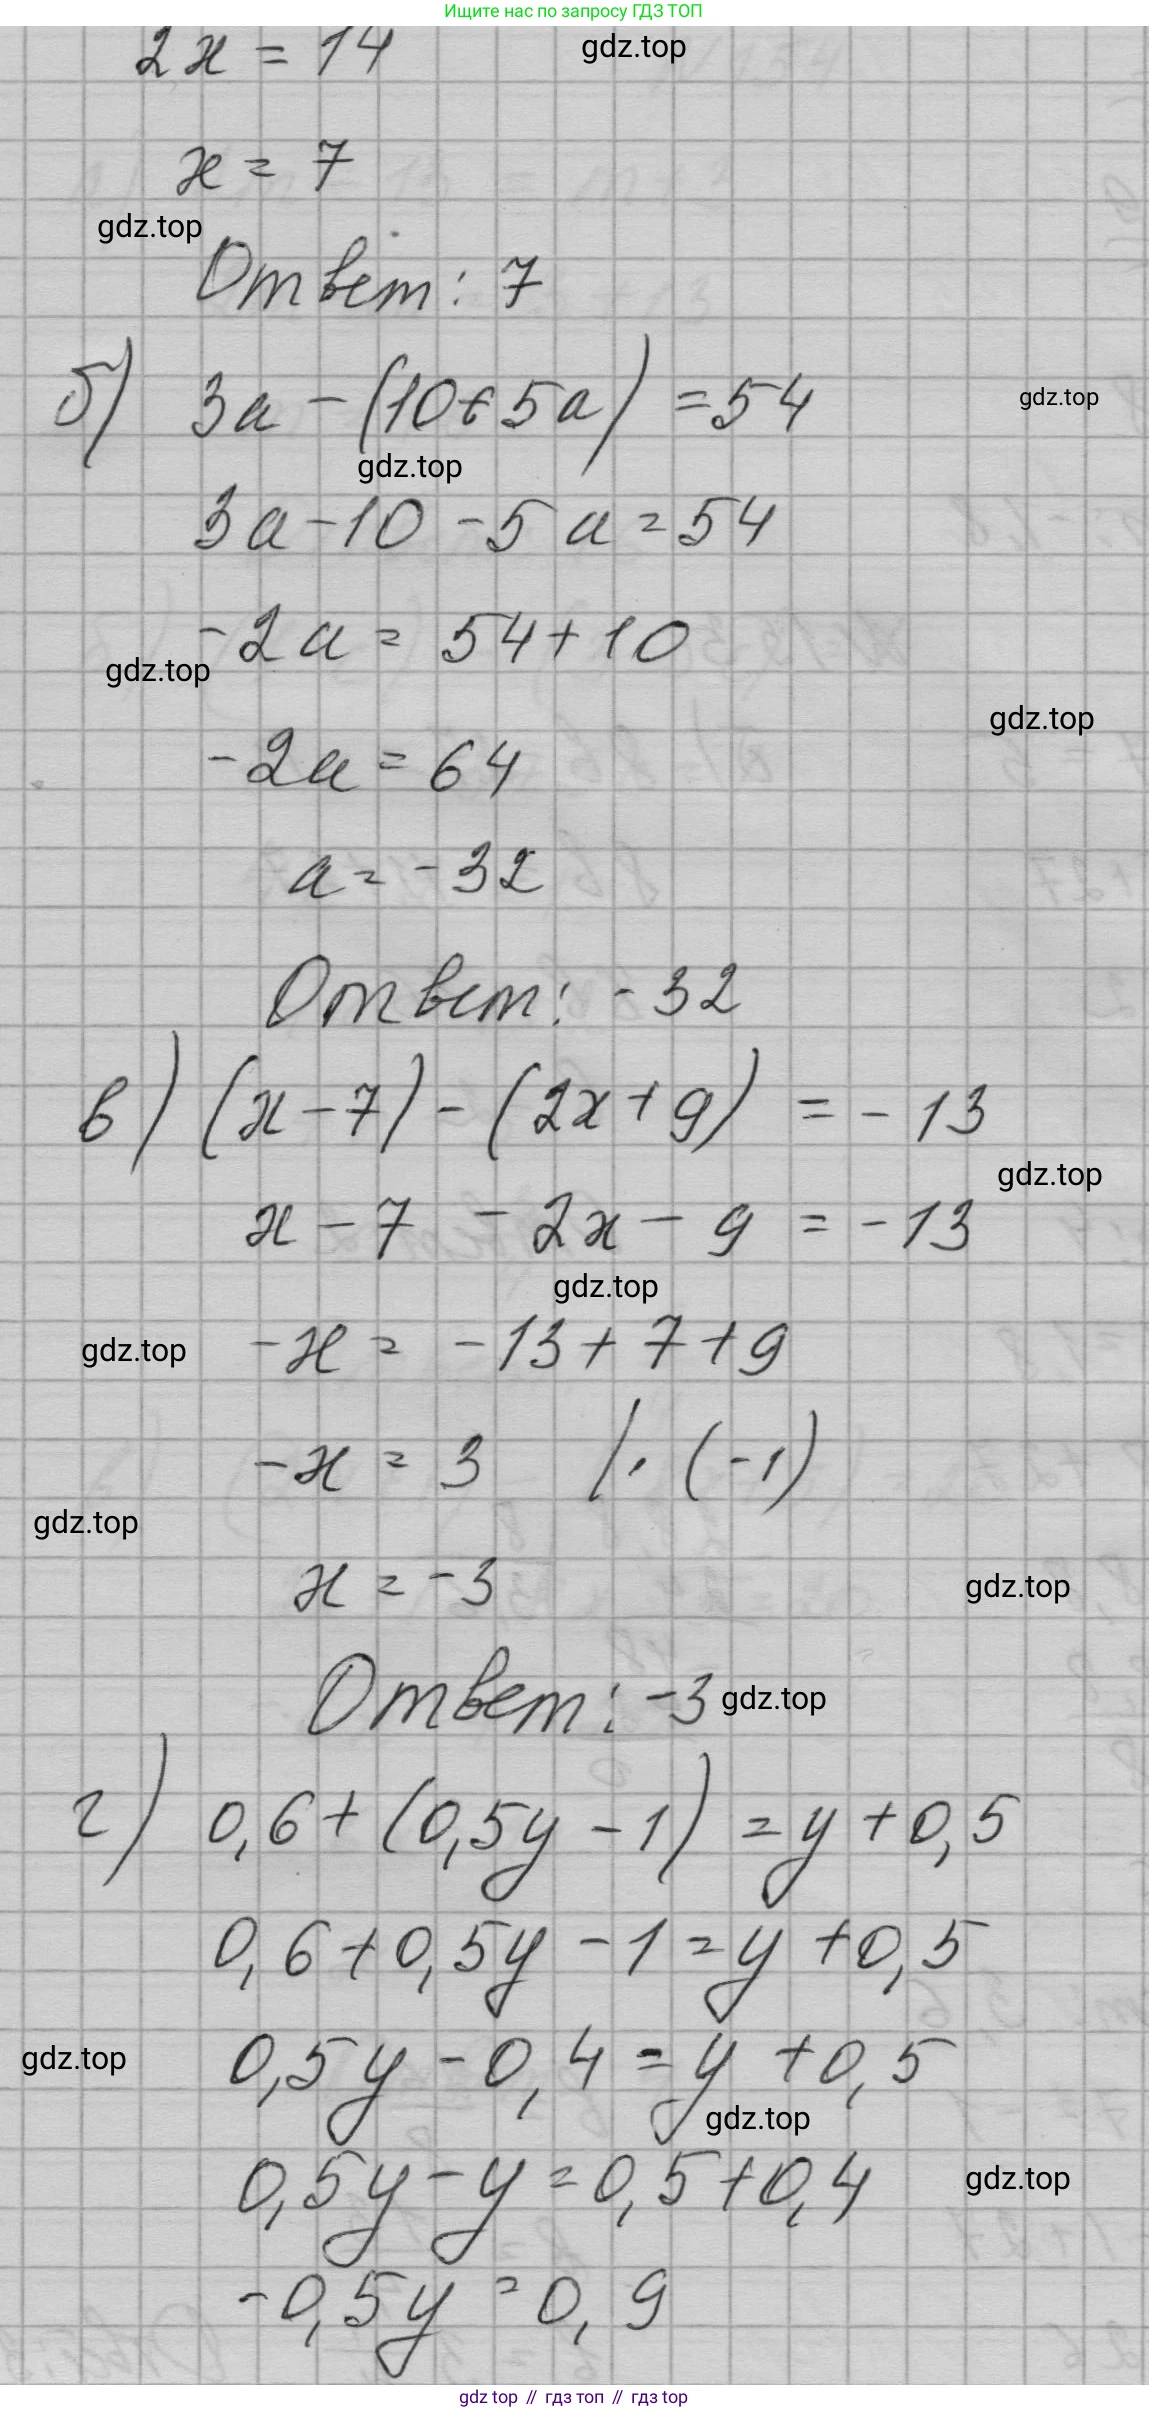 Ищите нас по запросу ГДЗ ТОП
2x = 14
gdz.top
x = 7
gdz.top
Ответ: 7
б) 3a - (10+5a) = 54
gdz.top
gdz.top
3a - 10 - 5a = 54
-2a = 54 + 10
gdz.top
gdz.top
-2a = 64
a = -32
Ответ: -32
в) (x - 7) - (2x + 9) = -13
gdz.top
x - 7 - 2x - 9 = -13
gdz.top
gdz.top
-x = -13 + 7 + 9
-x = 3 /· (-1)
gdz.top
x = -3
gdz.top
Ответ: -3
gdz.top
г) 0,6 + (0,5y - 1) = y + 0,5
0,6 + 0,5y - 1 = y + 0,5
gdz.top
0,5y - 0,4 = y + 0,5
gdz.top
0,5y - y = 0,5 + 0,4
gdz.top
-0,5y = 0,9
gdz top // гдз топ // gdz top